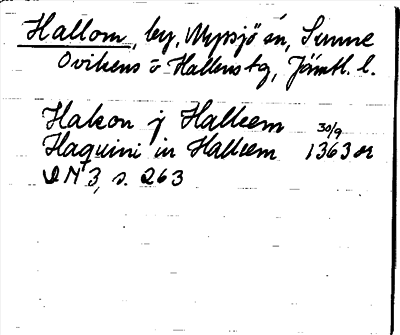 Hallom, by, Myssjö sn, Sunne
Ovikens o Hallens tg, Jämtl. l.
Hakon j Hallæm 30/9
Haquini in Hallæm 1363 or
DN 3, s. 263